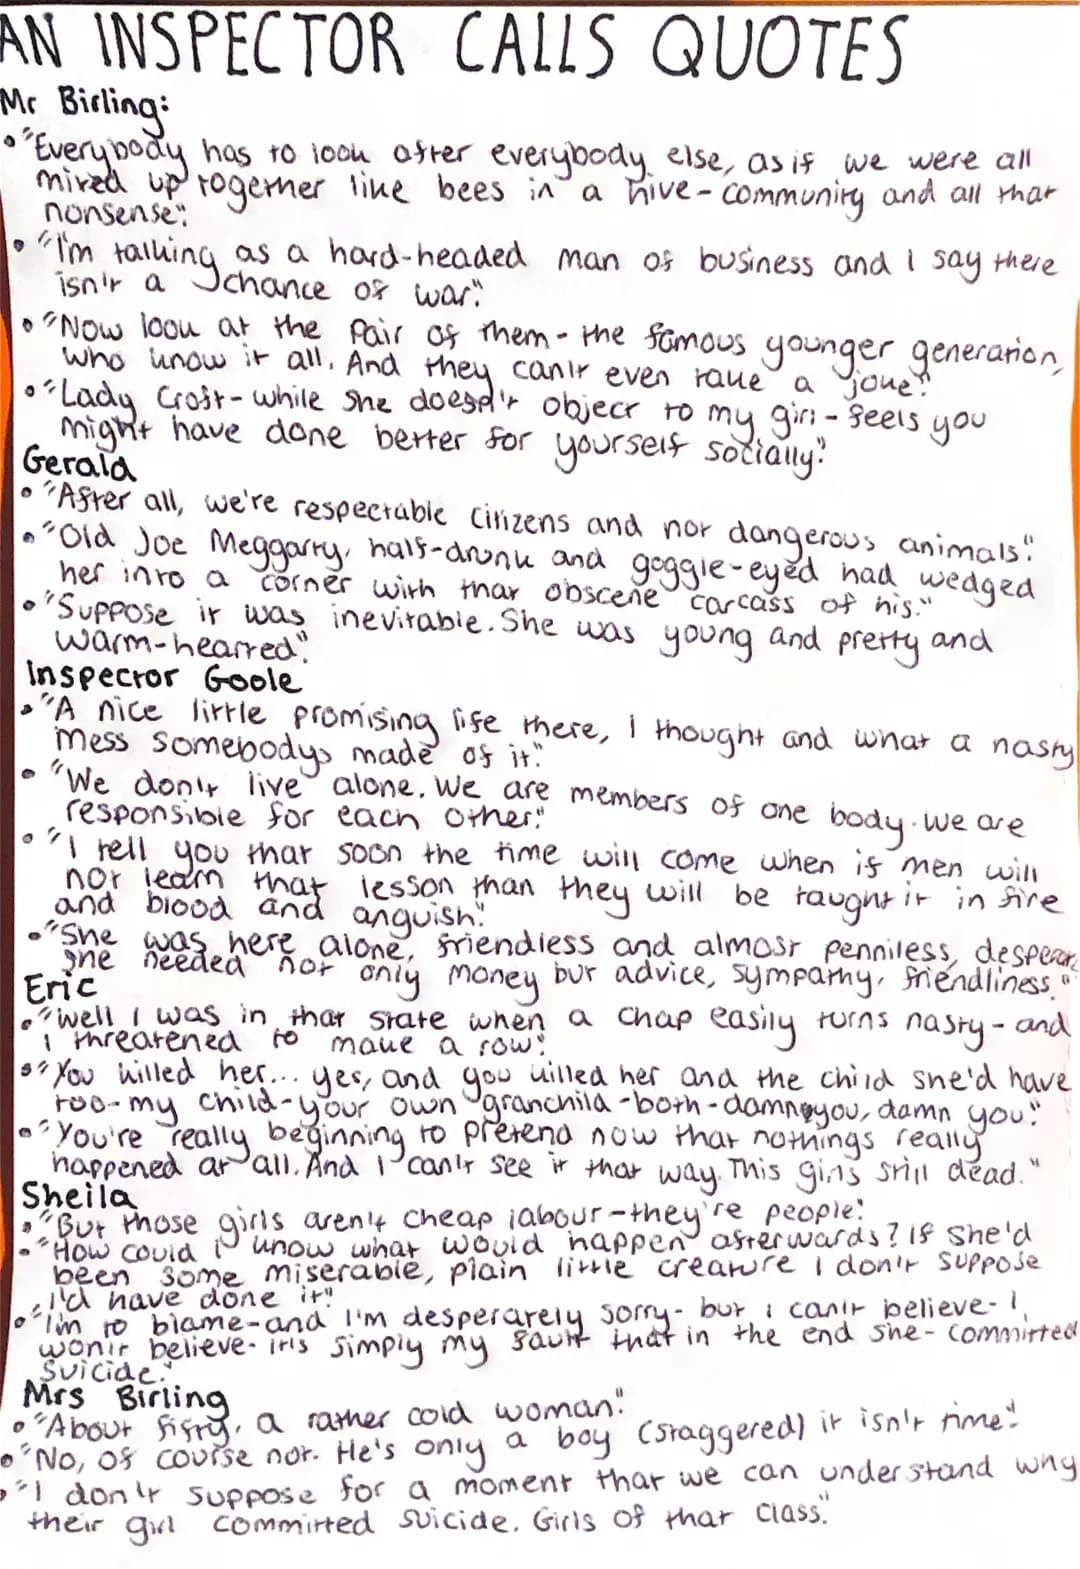 AN INSPECTOR CALLS QUOTES
Mr Birling:
• "Everybody has to look after everybody else, as if we were all
mixed up together like bees in a hive - community and all that
nonsense".
• "I'm talking as a hard-headed man of business and I say there
isn't a chance of war."
• "Now look at the pair of them - the famous younger generation,
who know it all. And they can't even take a joke."
• "Lady Croft - while she doesn't object to my girl - feels you
might have done better for yourself socially."
Gerald
• "After all, we're respectable citizens and not dangerous animals."
• "Old Joe Meggarty, half-drunk and goggle-eyed had wedged
her into a corner with that obscene carcass of his."
• "Suppose it was inevitable. She was young and pretty and
warm-hearted".
Inspector Goole
• "A nice little promising life there, I thought and what a nasty
mess somebodys made of it."
• "We don't live alone. We are members of one body. We are
responsible for each other."
• "I tell you that soon the time will come when if men will
not learn that lesson than they will be taught it in fire
and blood and anguish."
• "She was here alone, friendless and almost penniless, desperate
she needed not only money but advice, sympathy, friendliness."
Eric
• "Well I was in that state when a chap easily turns nasty - and
I threatened to make a row".
• "You killed her... yes, and you killed her and the child she'd have
too - my child - your own granchild - both - damn you, damn you."
• "You're really beginning to pretend now that nothings really
happened at all. And I can't see it that way. This girls still dead."
Sheila
• "But those girls aren't cheap labour - they're people".
• "How could I know what would happen afterwards? If she'd
been some miserable, plain little creature I don't suppose
I'd have done it"
• "I'm to blame - and I'm desperately sorry - but I can't believe - I
won't believe - it's simply my fault that in the end she - committed
suicide."
Mrs Birling
• "About fifty, a rather cold woman."
• "No, of course not. He's only a boy (staggered) it isn't time."
• "I don't suppose for a moment that we can understand why
their girl committed suicide. Girls of that class."